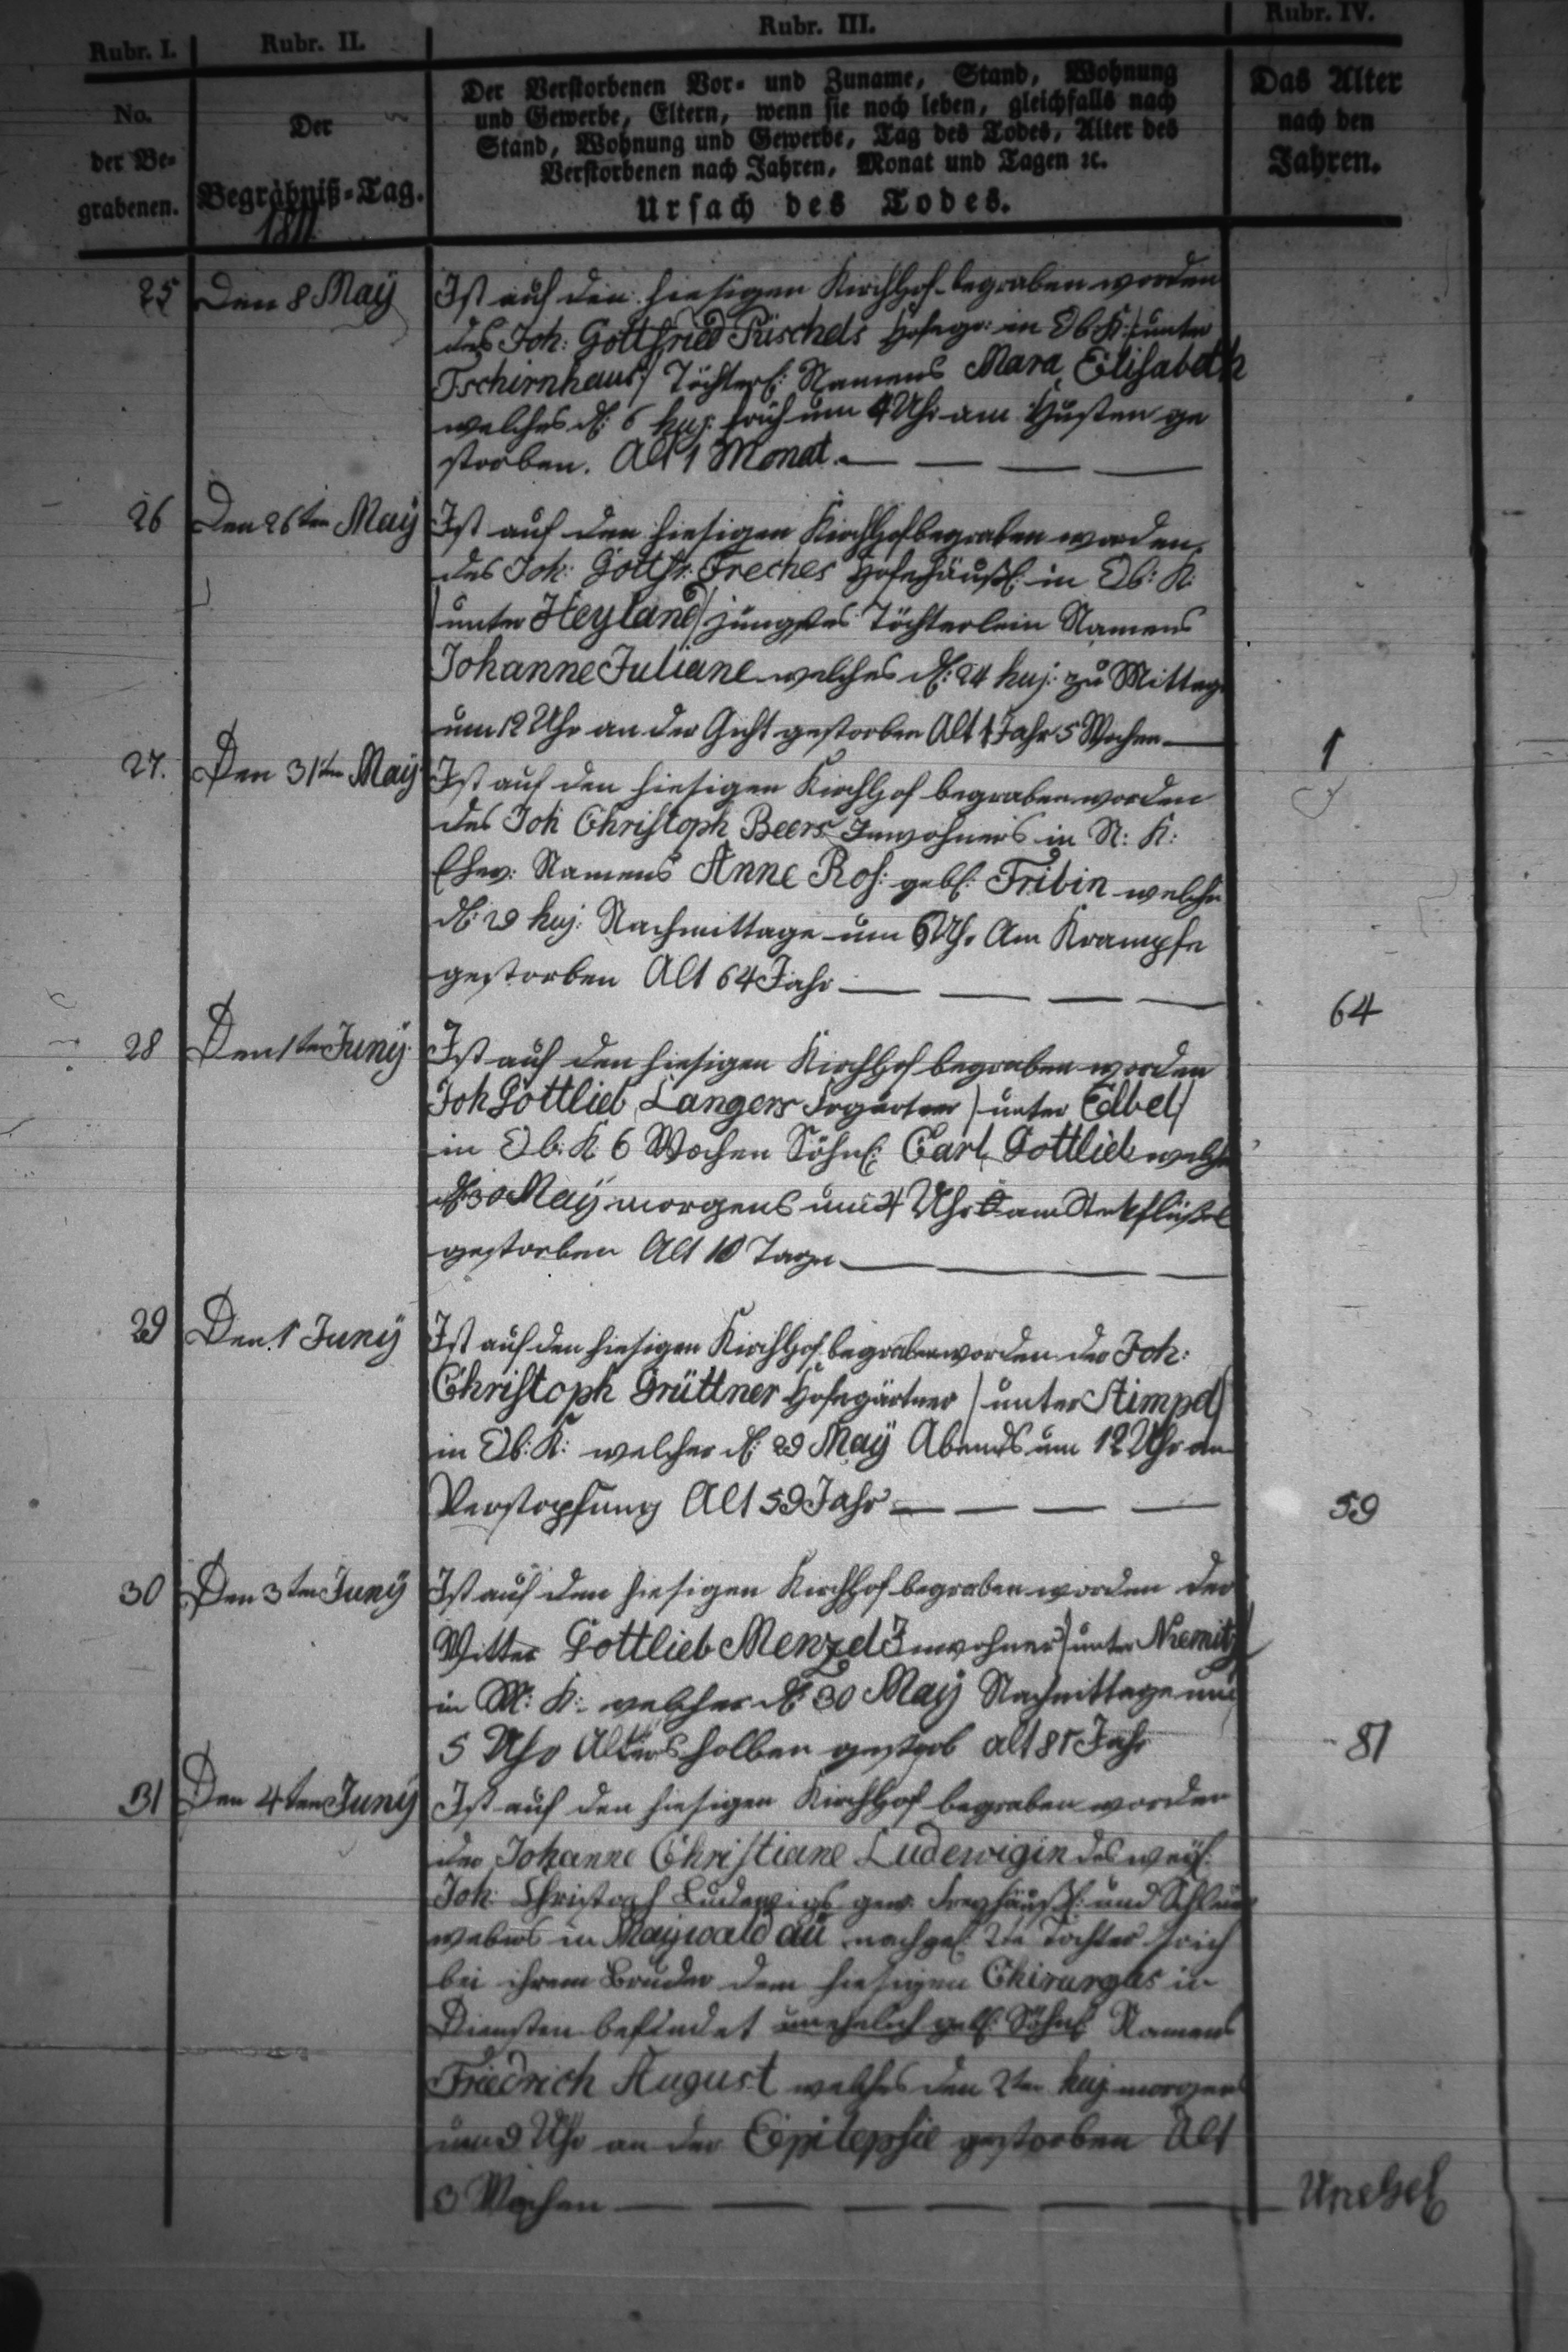 Rubr. I. Rubr. II. Rubr. III. Rubr. IV.
No. der Be-grabenen.
Der Begräbniß-Tag.
1811
Der Verstorbenen Vor- und Zuname, Stand, Wohnung
und Gewerbe, Eltern, wenn sie noch leben, gleichfalls nach
Stand, Wohnung und Gewerbe, Tag des Todes, Alter des
Verstorbenen nach Jahren, Monat und Tagen ꝛc.
Ursach des Todes.
Das Alter
nach den
Jahren.
25 Den 8 Maÿ Ist auf den hiesigen Kirchhof begraben worden
des Joh: Gottfried Püschels Hofegr: in Ob: K: /: unter
Tschirnhaus :/ Töchterl: Namens Mara Elisabeth
welches d: 6 huj: früh um 4 Uhr am Husten ge
storben. Alt 1 Monat.
26 Den 26ten Maÿ Ist auf den hiesigen Kirchhof begraben worden,
des Joh: Gottfr: Freches Hofehäusl: in Ob: K:
/ unter Heyland / jüngstes Töchterlein Namens
Johanne Juliane welches d: 24 huj: zu Mittag
um 12 Uhr an der Gicht gestorben Alt 1 Jahr 5 Wochen 1
27. Den 31ten Maÿ Ist auf den hiesigen Kirchhof begraben worden
des Joh Christoph Beers Inwohners in N: K:
Ehew: Namens Anne Ros: gebl: Fribin welche
d: 29 huj: Nachmittage um 6 Uhr Am Krampfe
gestorben Alt 64 Jahr 64
28 Den 1ten Junÿ Ist auf den hiesigen Kirchhof begraben worden
Joh Gottlieb Langers / unter Edbel /
in Ob: K 6 Wochen Söhnl: Carl Gottlieb welches
d: 30 Maÿ morgens um 4 Uhr am Stekflüßel
gestorben Alt 10 Tage
29 Den 1 Junÿ Ist auf den hiesigen Kirchhof begraben worden der Joh:
Christoph Grüttner Hofegärtner / unter Stimpel /
in Ob: K: welcher d: 29 Maÿ Abends um 12 Uhr an
Verstopfung Alt 59 Jahr 59
30 Den 3ten Junÿ Ist auf dem hiesigen Kirchhof begraben worden der
Witter Gottlieb Menzel Inwohner / unter Niemitz /
in M: K: welcher d: 30 Maÿ Nachmittage um
5 Uhr Alters halben gestorb alt 81 Jahr 81
31 Den 4ten Junÿ Ist auf den hiesigen Kirchhof begraben worden
der Johanne Christiane Ludewigin des weyl:
Joh: Christoph Ludewigs gew: Freyhäusl: und
webers in Maywaldau nachgel: 2te Tochter sich
bei ihrem Bruder dem hiesigen Chirurgus in
Diensten befindet unehelich gebl: Söhnl Namens
Friedrich August welches den 2ten huj morgens
um 9 Uhr an der Epilepsie gestorben Alt
3 Wochen Unehel